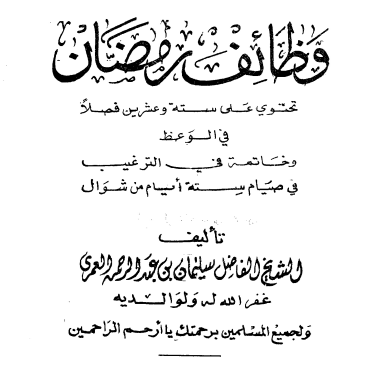 وَظَائِف رَمَضَان
تحتوي على ستة وعشرين فصلاً
في الوعظ
وخاتمة في الترغيب
في صيام ستة أيام من شوال
تأليف
الشيخ الفاضل سليمان بن عبد الرحمن العمري
غفر الله له ولوالديه
ولجميع المسلمين برحمتك يا أرحم الراحمين